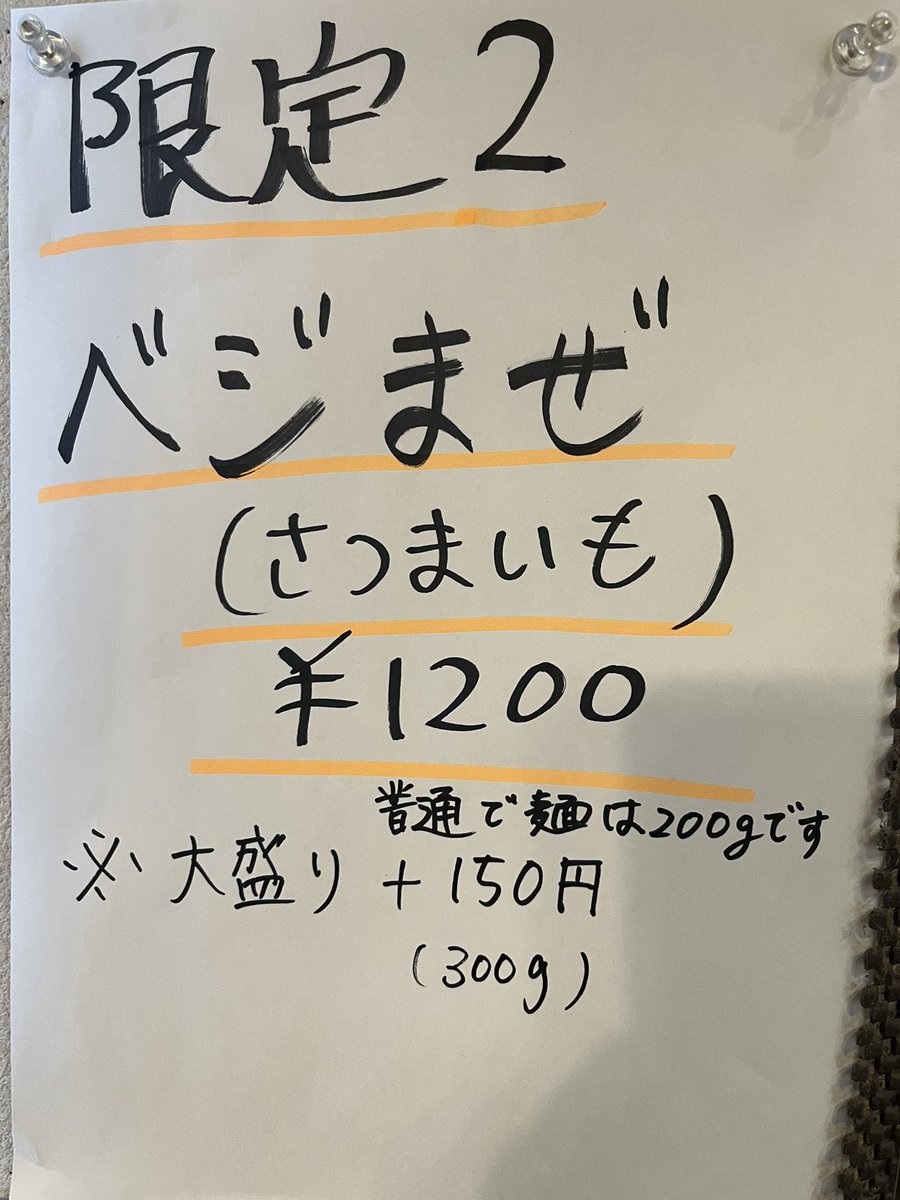 限定2
ベジまぜ
(さつまいも)
¥1200
普通で麺は200gです
※大盛り+150円
(300g)